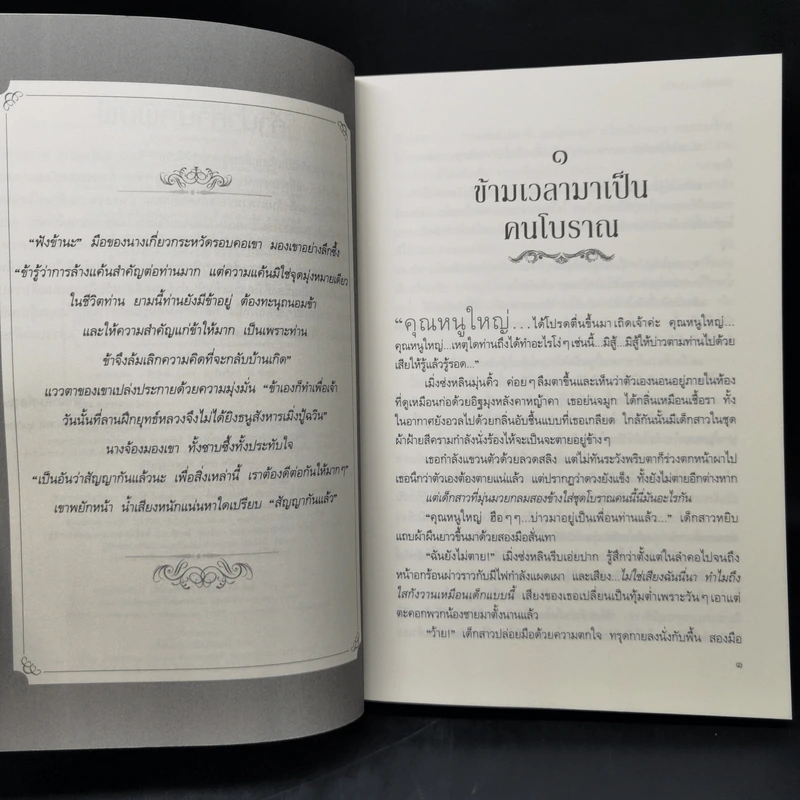 “ฟังข้านะ” มือของนางเกี่ยวกระหวัดรอบคอเขา มองเขาอย่างลึกซึ้ง
“ข้ารู้ว่าการล้างแค้นสำคัญต่อท่านมาก แต่ความแค้นมิใช่จุดมุ่งหมายเดียว
ในชีวิตท่าน ยามนี้ท่านยังมีข้าอยู่ ต้องทะนุถนอมข้า
และให้ความสำคัญแก่ข้าให้มาก เป็นเพราะท่าน
ข้าจึงล้มเลิกความคิดที่จะกลับบ้านเกิด”
แววตาของเขาเปล่งประกายด้วยความมุ่งมั่น “ข้าเองก็ทำเพื่อเจ้า
วันนั้นที่ลานฝึกยุทธ์หลวงจึงไม่ได้ยิงธนูสังหารเมิ่งปู้ฉวิน”
นางจ้องมองเขา ทั้งซาบซึ้งทั้งประทับใจ
“เป็นอันว่าสัญญากันแล้วนะ เพื่อสิ่งเหล่านี้ เราต้องดีต่อกันให้มากๆ”
เขาพยักหน้า น้ำเสียงหนักแน่นหาใดเปรียบ “สัญญากันแล้ว”
๑
ข้ามเวลามาเป็น
คนโบราณ
“คุณหนูใหญ่...ได้โปรดตื่นขึ้นมาเถิดเจ้าค่ะ คุณหนูใหญ่...
คุณหนูใหญ่...เหตุใดท่านถึงได้ทำอะไรโง่ๆ เช่นนี้...มิสู้...มิสู้ให้บ่าวตามท่านไปด้วย
เสียให้รู้แล้วรู้รอด...”
เมิ่งซ่งหลินมุ่นคิ้ว ค่อยๆ ลืมตาขึ้นและเห็นว่าตัวเองนอนอยู่ภายในห้อง
ที่ดูเหมือนก่อด้วยอิฐมุงหลังคาหญ้าคา เธอย่นจมูก ได้กลิ่นเหมือนเชื้อรา ทั้ง
ในอากาศยังอวลไปด้วยกลิ่นอับชื้นแบบที่เธอเกลียด ใกล้กันนั้นมีเด็กสาวในชุด
ผ้าฝ้ายสีครามกำลังนั่งร้องไห้จะเป็นจะตายอยู่ข้างๆ
เธอกำลังแขวนตัวด้วยลวดสลิง แต่ไม่ทันระวังพริบตาก็ร่วงตกหน้าผาไป
เธอนึกว่าตัวเองต้องตายแน่แล้ว แต่ปรากฏว่าดวงยังแข็ง ทั้งยังไม่ตายอีกต่างหาก
แต่เด็กสาวที่มุ่นมวยกลมสองข้างใส่ชุดโบราณคนนี้นี่มันอะไรกัน
“คุณหนูใหญ่ ฮือๆๆ...บ่าวมาอยู่เป็นเพื่อนท่านแล้ว...” เด็กสาวหยิบ
แถบผ้าผืนยาวขึ้นมาด้วยสองมือสั่นเทา
“ฉันยังไม่ตาย!” เมิ่งซ่งหลินรีบเอ่ยปาก รู้สึกว่าตั้งแต่ในลำคอไปจนถึง
หน้าอกร้อนผ่าวราวกับมีไฟกำลังแผดเผา และเสียง...ไม่ใช่เสียงฉันนี่นา ทำไมถึง
ใสกังวานเหมือนเด็กแบบนี้ เสียงของเธอเปลี่ยนเป็นทุ้มต่ำเพราะวันๆ เอาแต่
ตะคอกพวกน้องชายมาตั้งนานแล้ว
“ว้าย!” เด็กสาวปล่อยมือด้วยความตกใจ ทรุดกายลงนั่งกับพื้น สองมือ
๑